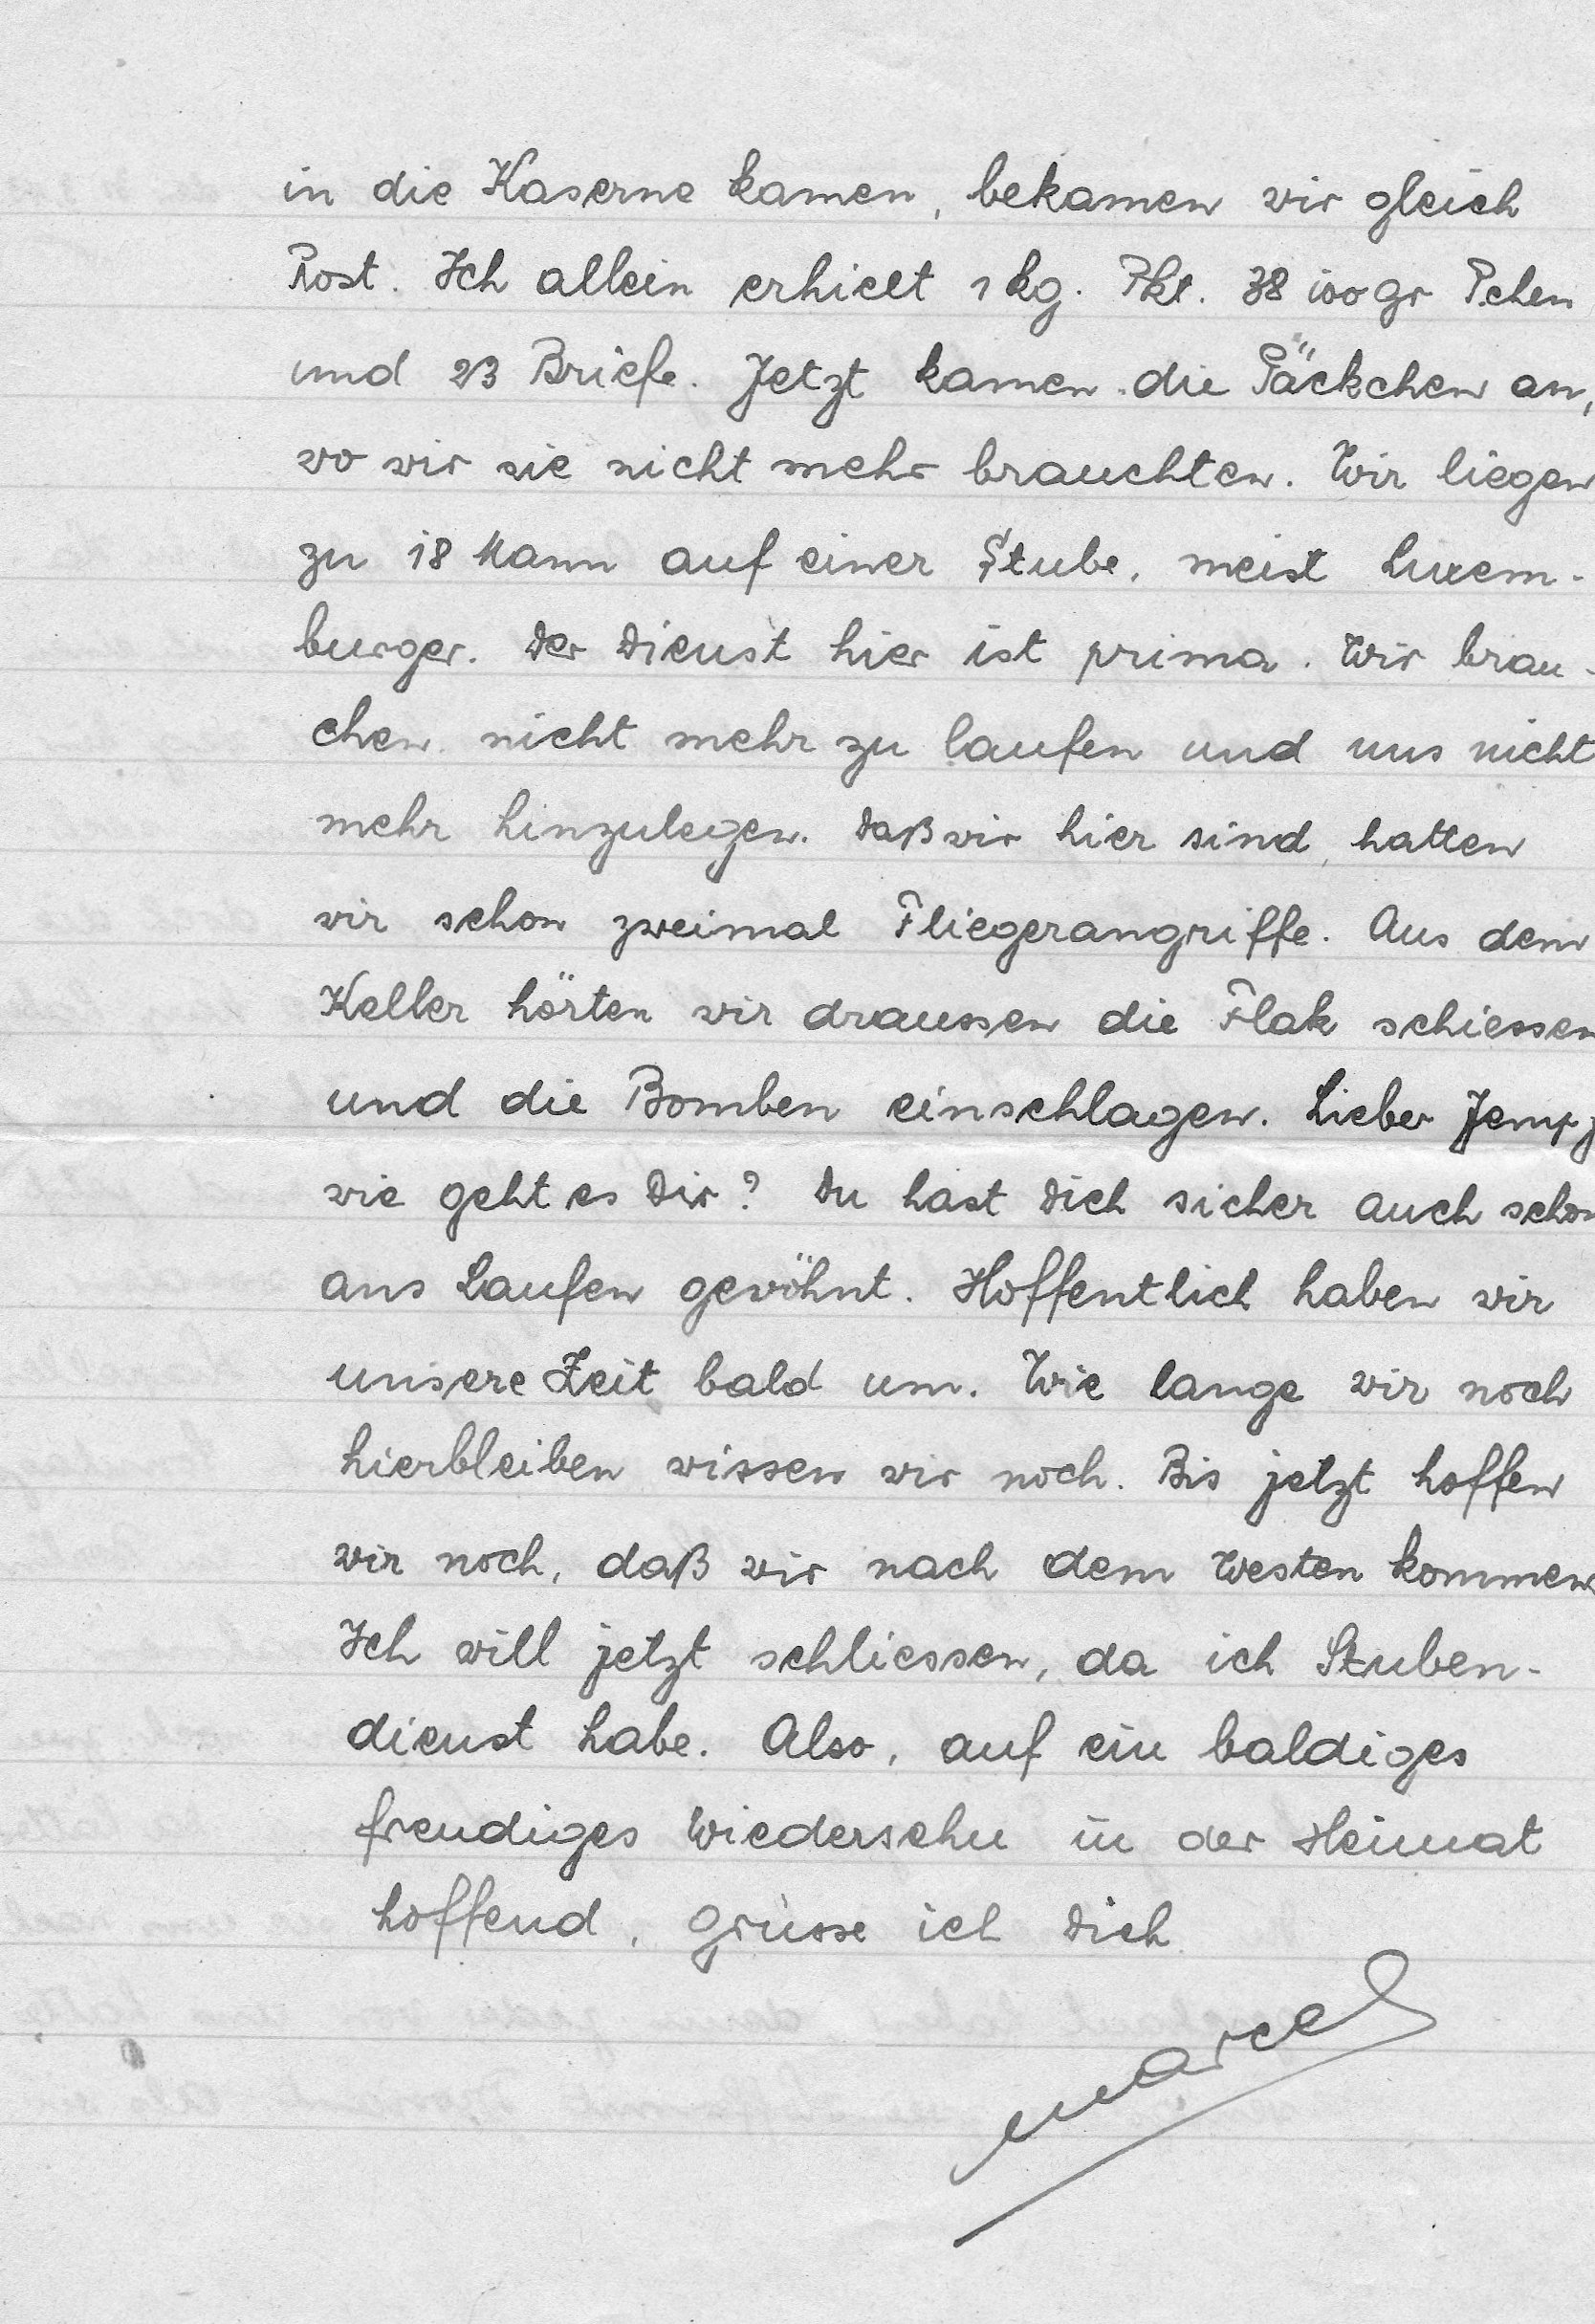 in die Kaserne kamen, bekamen wir gleich
Post. Ich allein erhielt 1 kg. Pkt. 38 100 gr Pchen
und 23 Briefe. Jetzt kamen die Päckchen an,
wo wir sie nicht mehr brauchten. Wir liegen
zu 18 Mann auf einer Stube, meist Luxem-
burger. Der Dienst hier ist prima. Wir brau-
chen nicht mehr zu laufen und uns nicht
mehr hinzulegen. Daß wir hier sind, hatten
wir schon zweimal Fliegerangriffe. Aus dem
Keller hörten wir draussen die Flak schiessen
und die Bomben einschlagen. Lieber
wie geht es Dir? Du hast Dich sicher auch schon
ans Laufen gewöhnt. Hoffentlich haben wir
unsere Zeit bald um. Wie lange wir noch
hierbleiben wissen wir noch. Bis jetzt hoffen
wir noch, daß wir nach dem Westen kommen
Ich will jetzt schliessen, da ich Stuben-
dienst habe. Also, auf ein baldiges
freudiges Wiedersehn in der Heimat
hoffend, grüsse ich Dich
Marcel